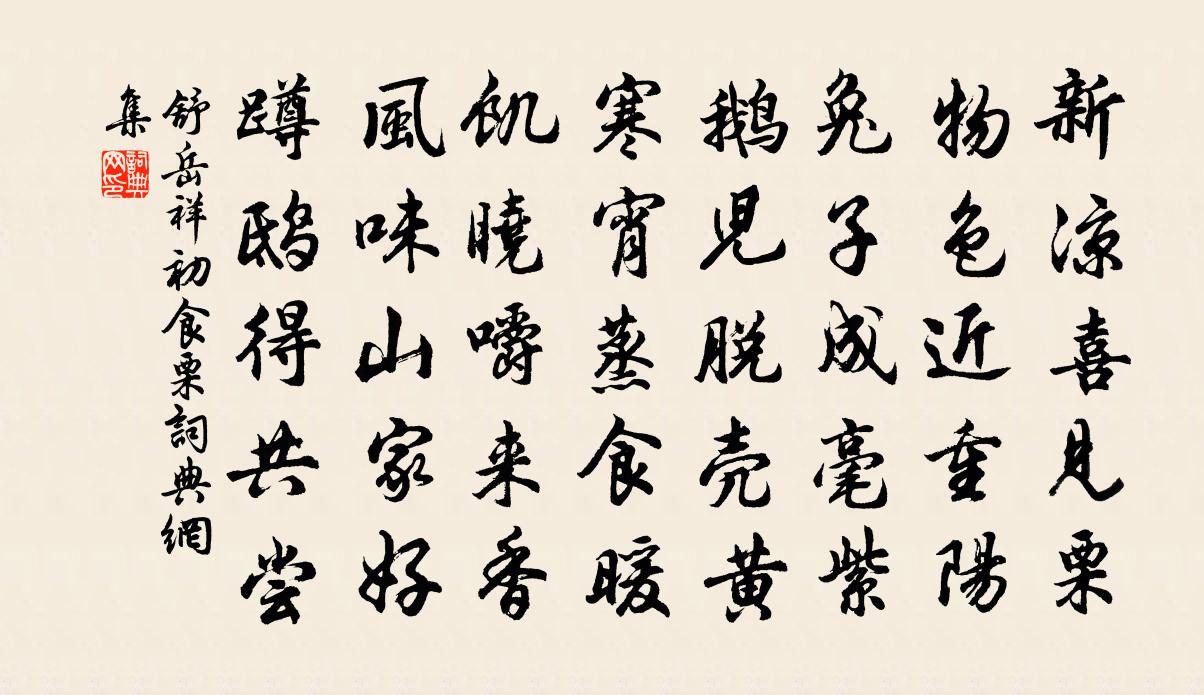 新涼喜見栗
物色近重陽
兔子成毫紫
鹅児脱壳黄
寒宵蒸食暖
飢曉嚼来香
風味山家好
蹲鸱得共尝
舒岳祥初食栗詞典網
集
詞典
网印